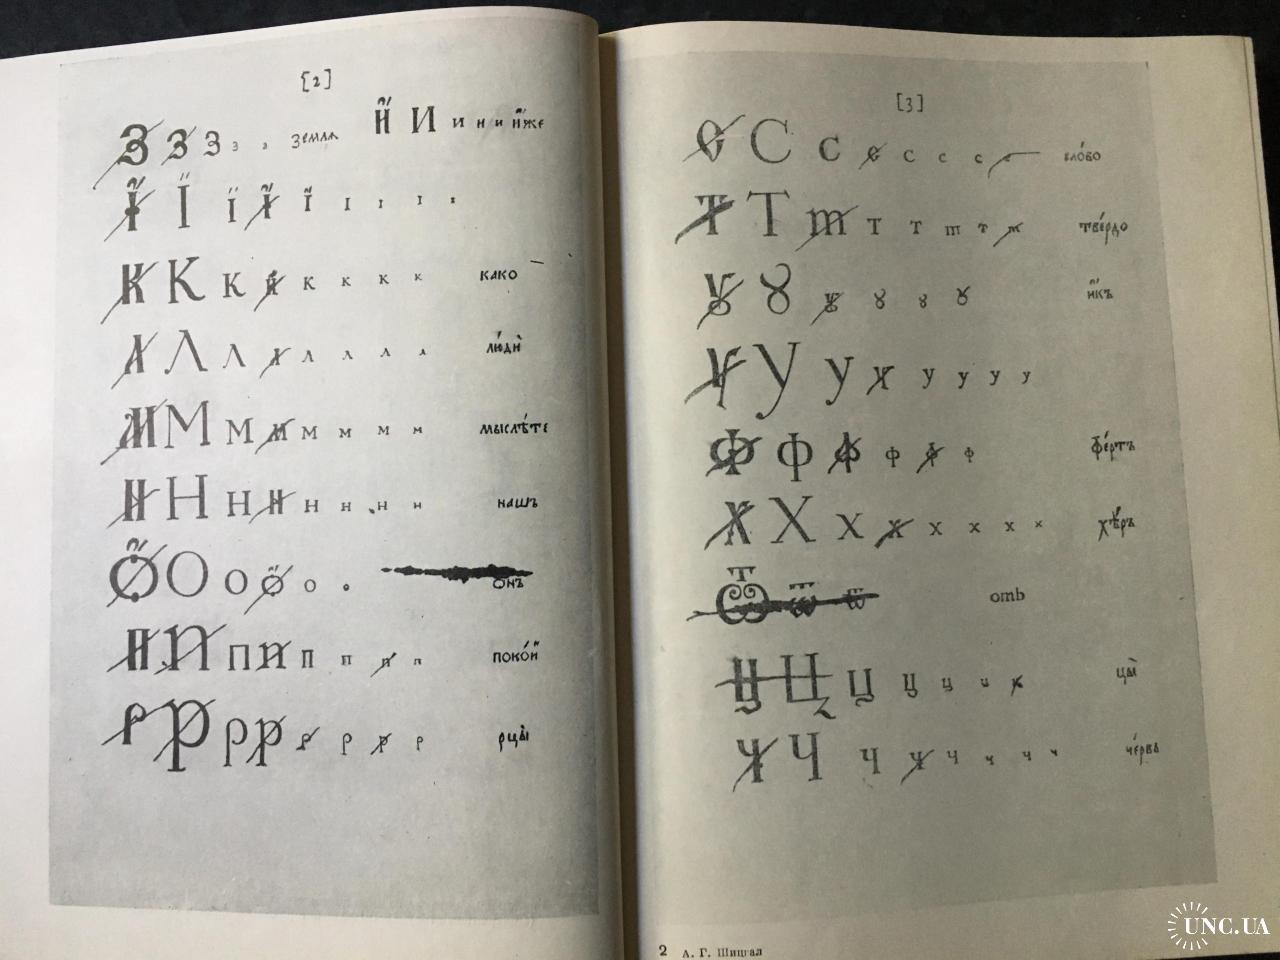 [2]
З З З з з земля Й И и н и и҆́же
Ї Ї ї ї ї ı ı ı ı
К К К к к к к к како
Л Л л л л л л л лю́ди
М М м м м м м м мыслѣ́те
Н Н н н н н н н нашъ
О О о о о о о́нъ
П П п п п п п п поко́й
Р Р р р р р р р рцы̀
[3]
С С с с с с с с сло́во
Т Т т т т т т т тве́рдо
Ꙋ Ꙋ ꙋ ꙋ ꙋ ꙋ и҆́къ
У У у у у у у у
Ф ф ф ф ф ф фе́ртъ
Х Х х х х х х х хѣ́ръ
Ѿ ѿ ѿ отъ
Ц Ц ц ц ц ц ц цы̀
Ч Ч ч ч ч ч ч ч че́рвь
2 А. Г. Шицгал
UNC.UA